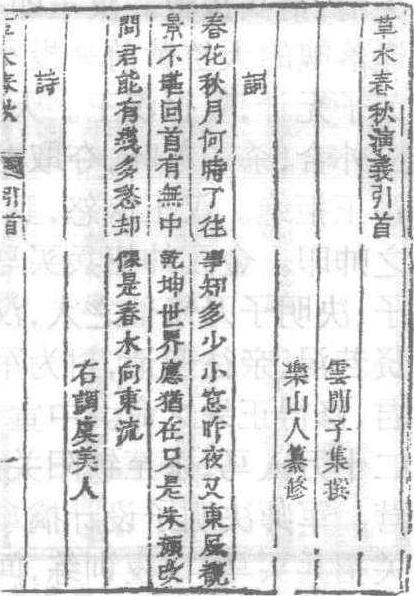 草木春秋演義引首
雲間子集撰
樂山人纂修
詞
春花秋月何時了往事知多少小窓昨夜又東風觀
景不堪回首有無中乾坤世界應猶在只是朱顏改
問君能有幾多愁却像是春水向東流
右調虞美人
詩
草木春秋 引首 一